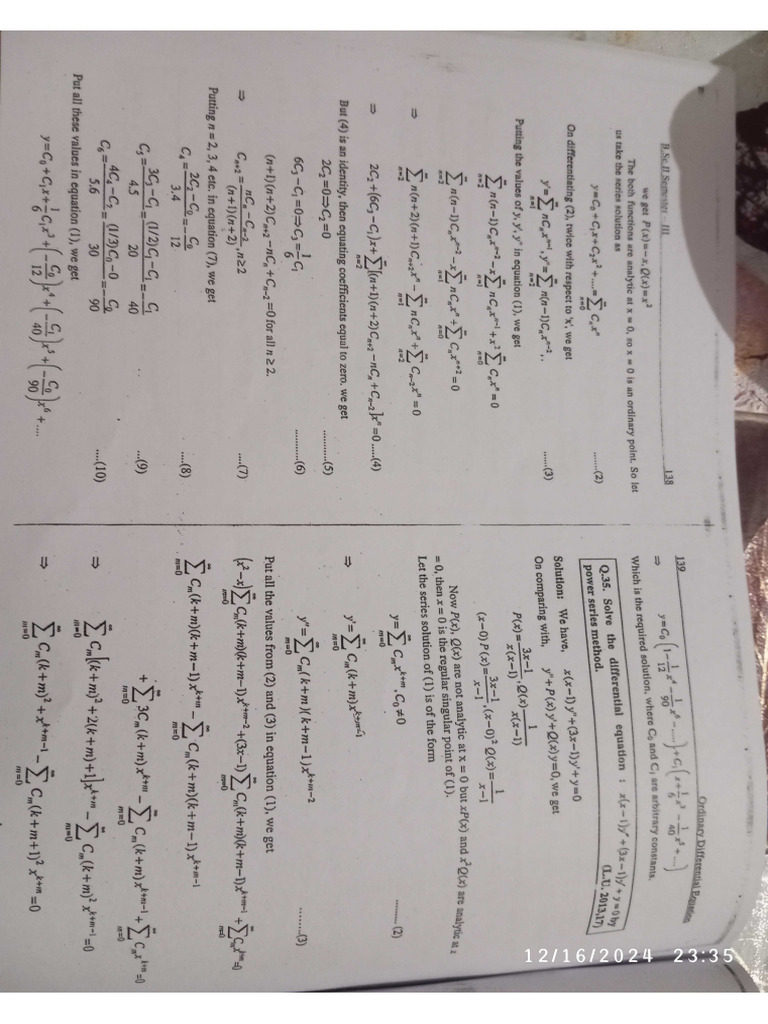 B.Sc. II Semester - III 138
we get P(x)=-x, Q(x)=x²
The both functions are analytic at x = 0, so x = 0 is an ordinary point. So let
us take the series solution as
y=C₀+C₁x+C₂x²+....=∑_{n=0}^∞ Cₙxⁿ .......(2)
On differentiating (2), twice with respect to 'x', we get
y'=∑_{n=1}^∞ nCₙxⁿ⁻¹, y''=∑_{n=2}^∞ n(n-1)Cₙxⁿ⁻², . ......(3)
Putting the values of y, y', y'' in equation (1), we get
∑_{n=2}^∞ n(n-1)Cₙxⁿ⁻²-x∑_{n=1}^∞ nCₙxⁿ⁻¹+x²∑_{n=0}^∞ Cₙxⁿ=0
∑_{n=2}^∞ n(n-1)Cₙxⁿ⁻²-x∑_{n=1}^∞ nCₙxⁿ+∑_{n=0}^∞ Cₙxⁿ⁺²=0
⇒ ∑_{n=2}^∞ n(n+2)(n+1)Cₙ₊₂xⁿ-∑_{n=1}^∞ nCₙxⁿ+∑_{n=2}^∞ Cₙ₋₂xⁿ=0
⇒ 2C₂+(6C₃-C₁)x+∑_{n=2}^∞[(n+1)(n+2)Cₙ₊₂-nCₙ+Cₙ₋₂]xⁿ=0 .....(4)
But (4) is an identity, then equating coefficients equal to zero, we get
2C₂=0⇒C₂=0 ...........(5)
6C₃-C₁=0⇒C₃=1/6 C₁ ...........(6)
(n+1)(n+2)Cₙ₊₂-nCₙ+Cₙ₋₂=0 for all n ≥ 2.
⇒ Cₙ₊₂=(nCₙ-Cₙ₋₂)/((n+1)(n+2)), n≥2 ....(7)
Putting n = 2, 3, 4 etc. in equation (7), we get
C₄=(2C₂-C₀)/3.4=-C₀/12 ....(8)
C₅=(3C₃-C₁)/4.5=((1/2)C₁-C₁)/20=-C₁/40 ...(9)
C₆=(4C₄-C₂)/5.6=((1/3)C₀-0)/30=-C₀/90 ....(10)
Put all these values in equation (1), we get
y=C₀+C₁x+1/6 C₁x³+(-C₀/12)x⁴+(-C₁/40)x⁵+(-C₀/90)x⁶+....
139 Ordinary Differential Equation
⇒ y=C₀(1-1/12 x⁴-1/90 x⁶-....)+C₁(x+1/6 x³-1/40 x⁵+...)
Which is the required solution, where C₀ and C₁ are arbitrary constants.
Q.35. Solve the differential equation : x(x-1)y''+(3x-1)y'+y=0 by
power series method. (L.U. 2013,17)
Solution: We have, x(x-1)y''+(3x-1)y'+y=0
On comparing with, y''+P(x)y'+Q(x)y=0, we get
P(x)=(3x-1)/(x(x-1)), Q(x)=1/(x(x-1))
(x-0)P(x)=(3x-1)/(x-1), (x-0)²Q(x)=1/(x-1)
Now P(x), Q(x) are not analytic at x = 0 but xP(x) and x²Q(x) are analytic at x
= 0, then x = 0 is the regular singular point of (1).
Let the series solution of (1) is of the form
y=∑_{m=0}^∞ Cₘxᵏ⁺ᵐ, C₀≠0 ......... (2)
⇒ y'=∑_{m=0}^∞ Cₘ(k+m)xᵏ⁺ᵐ⁻¹
y''=∑_{m=0}^∞ Cₘ(k+m)(k+m-1)xᵏ⁺ᵐ⁻² ........(3)
Put all the values from (2) and (3) in equation (1), we get
(x²-x)∑_{m=0}^∞ Cₘ(k+m)(k+m-1)xᵏ⁺ᵐ⁻²+(3x-1)∑_{m=0}^∞ Cₘ(k+m)(k+m-1)xᵏ⁺ᵐ⁻¹+∑_{m=0}^∞ Cₘxᵏ⁺ᵐ=0
∑_{m=0}^∞ Cₘ(k+m)(k+m-1)xᵏ⁺ᵐ-∑_{m=0}^∞ Cₘ(k+m)(k+m-1)xᵏ⁺ᵐ⁻¹
+∑_{m=0}^∞ 3Cₘ(k+m)xᵏ⁺ᵐ-∑_{m=0}^∞ Cₘ(k+m)xᵏ⁺ᵐ⁻¹+∑_{m=0}^∞ Cₘxᵏ⁺ᵐ=0
⇒ ∑_{m=0}^∞ Cₘ[(k+m)²+2(k+m)+1]xᵏ⁺ᵐ-∑_{m=0}^∞ Cₘ(k+m)²xᵏ⁺ᵐ⁻¹=0
⇒ ∑_{m=0}^∞ Cₘ(k+m)²+xᵏ⁺ᵐ⁻¹-∑_{m=0}^∞ Cₘ(k+m+1)²xᵏ⁺ᵐ=0
12/16/2024 23:35